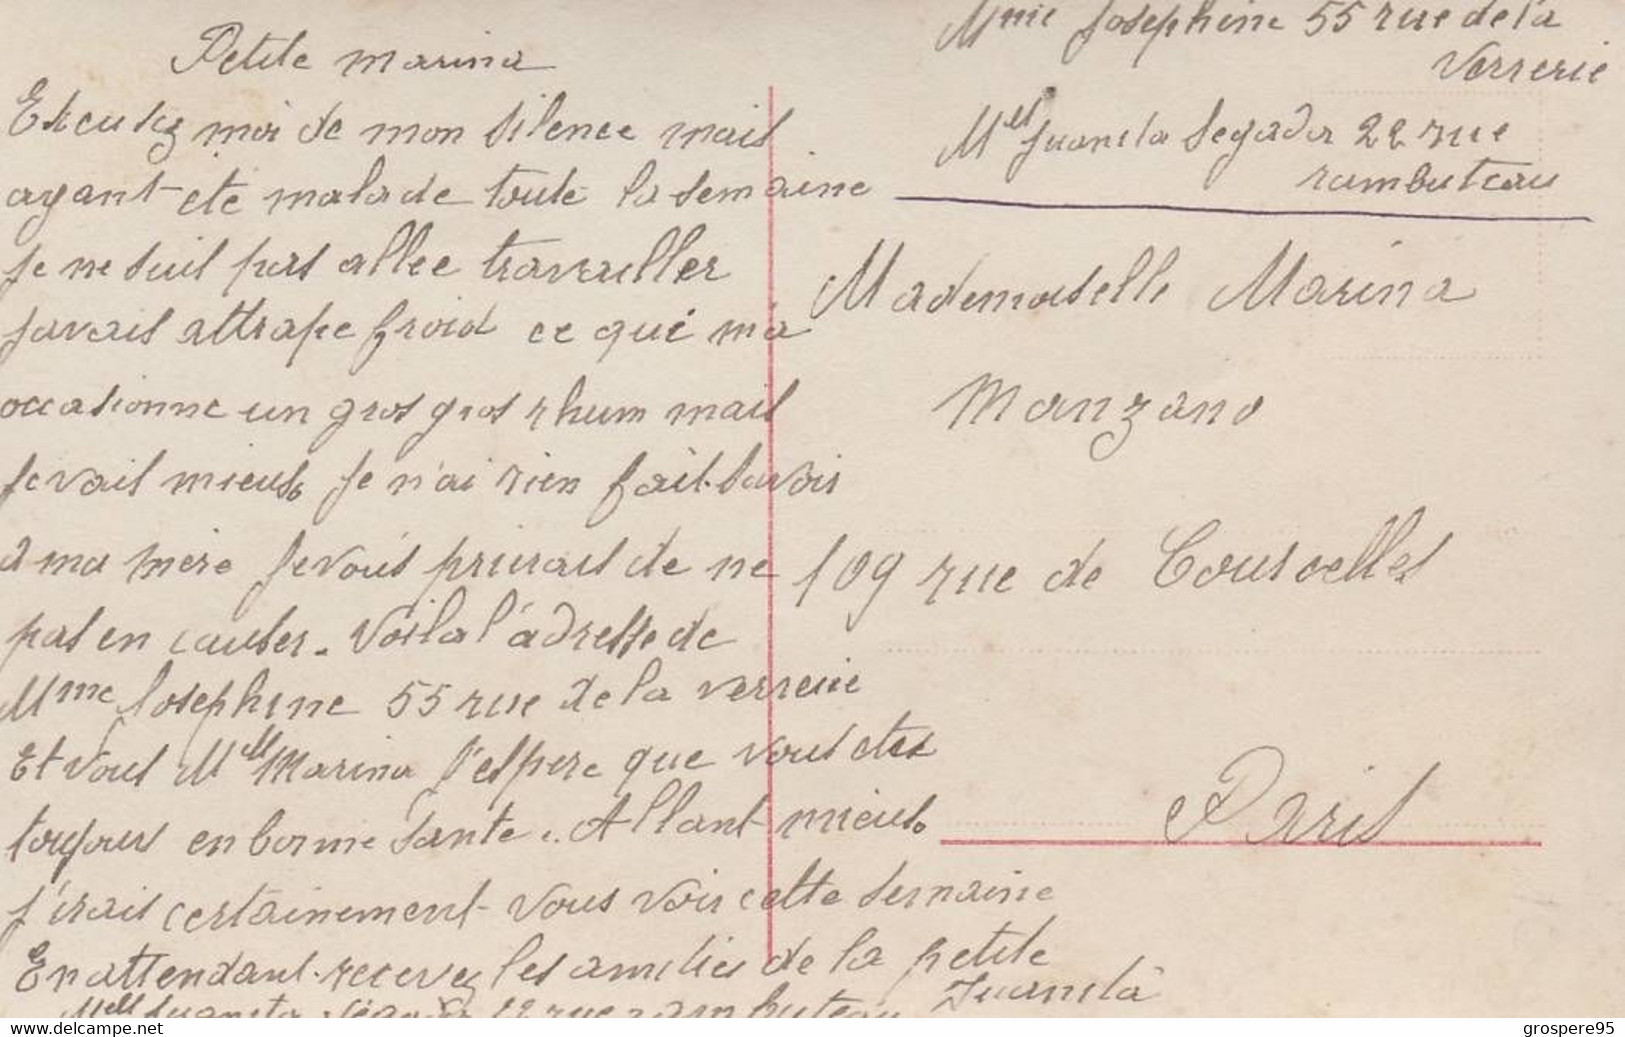 Petite marina
Excusez moi de mon silence mais
ayant été malade toute la semaine
je ne suis pas allee travailler
javais attrape froid ce qui ma
occasionne un gros gros rhum mais
Je vais mieux Je n'ai rien fait savoir
a ma mère Je vous prirais de ne
pas en causer. Voila l'adresse de
Mme Josephine 55 rue de la verrerie
Et vous Melle Marina J'espere que vous etes
toujours en bonne sante. Allant mieux
j'irais certainement vous voir cette semaine
En attendant recevez les amities de la petite
Juanita
Melle Juanita Segada 22 rue rambuteau
Mme Josephine 55 rue de la
Verrerie
Mell Juanita Segada 22 rue
rambuteau
Mademoiselle Marina
Manzano
109 rue de Courcelles
Paris
www.delcampe.net
grospere95